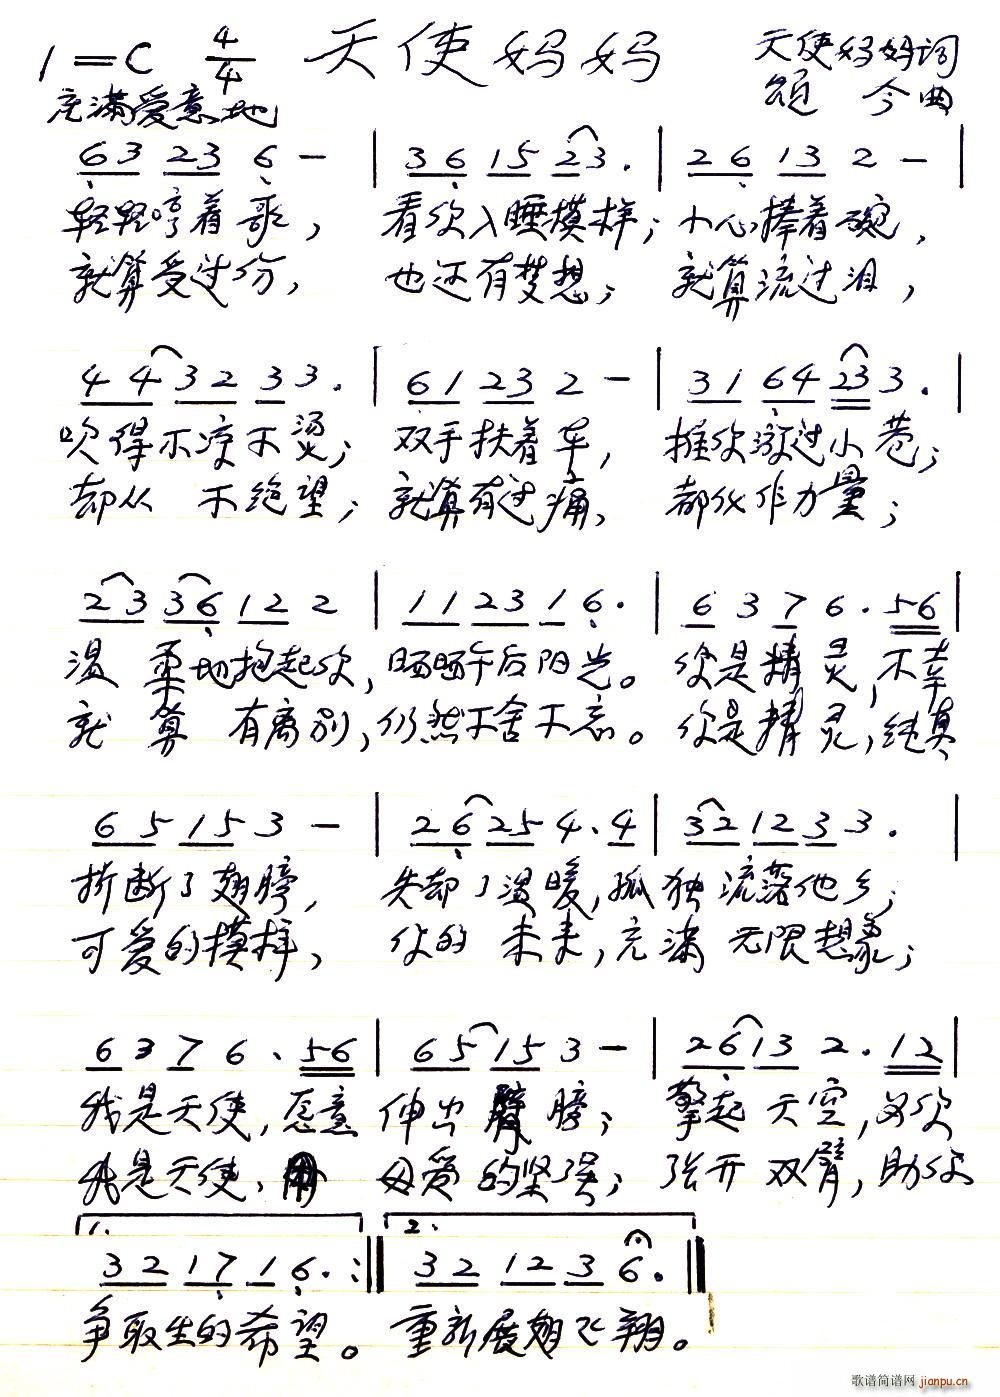 1=C 4/4 天使妈妈 天使妈妈词
颂今曲
充满爱意地
6 3 2 3 6 － | 3 6 1 5 2 3 . | 2 6 1 3 2 － |
轻轻哼着歌， 看你入睡模样； 小心捧着碗，
就算受过伤， 也还有梦想； 就算流过泪，
4 4 3 2 3 3 . | 6 1 2 3 2 － | 3 1 6 4 2 3 3 . |
吹得不凉不烫； 双手扶着车， 推你渡过小巷；
却从 不绝望； 就算有过痛， 都化作力量；
2 3 3 6 1 2 2 | 1 1 2 3 1 6 . | 6 3 7 6 . 5 6 |
温 柔地抱起你， 晒晒午后阳光。 你是精灵，不幸
就 算 有离别， 仍然不舍不忘。 你是精灵，纯真
6 5 1 5 3 － | 2 6 2 5 4 . 4 | 3 2 1 2 3 3 . |
折断了翅膀， 失却了温暖，孤独流落他乡；
可爱的模样， 你的 未来，充满 无限想象；
6 3 7 6 . 5 6 | 6 5 1 5 3 － | 2 6 1 3 2 . 1 2 |
我是天使，愿意 伸出臂膀； 擎起天空，为你
我是天使，用 母爱的坚强； 张开双臂，助你
1. 2.
3 2 1 7 1 6 . :‖ 3 2 1 2 3 6 . ‖
争取生的希望。 重新展翅飞翔。
歌谱简谱网 jianpu.cn